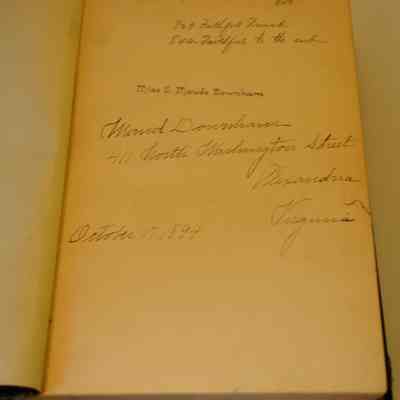 329 Faithful Friend
500 Faithful to the end
Miss E. Maude Downham
Maud Downham
411 North Washington Street
Alexandria
Virginia
October 17, 1894